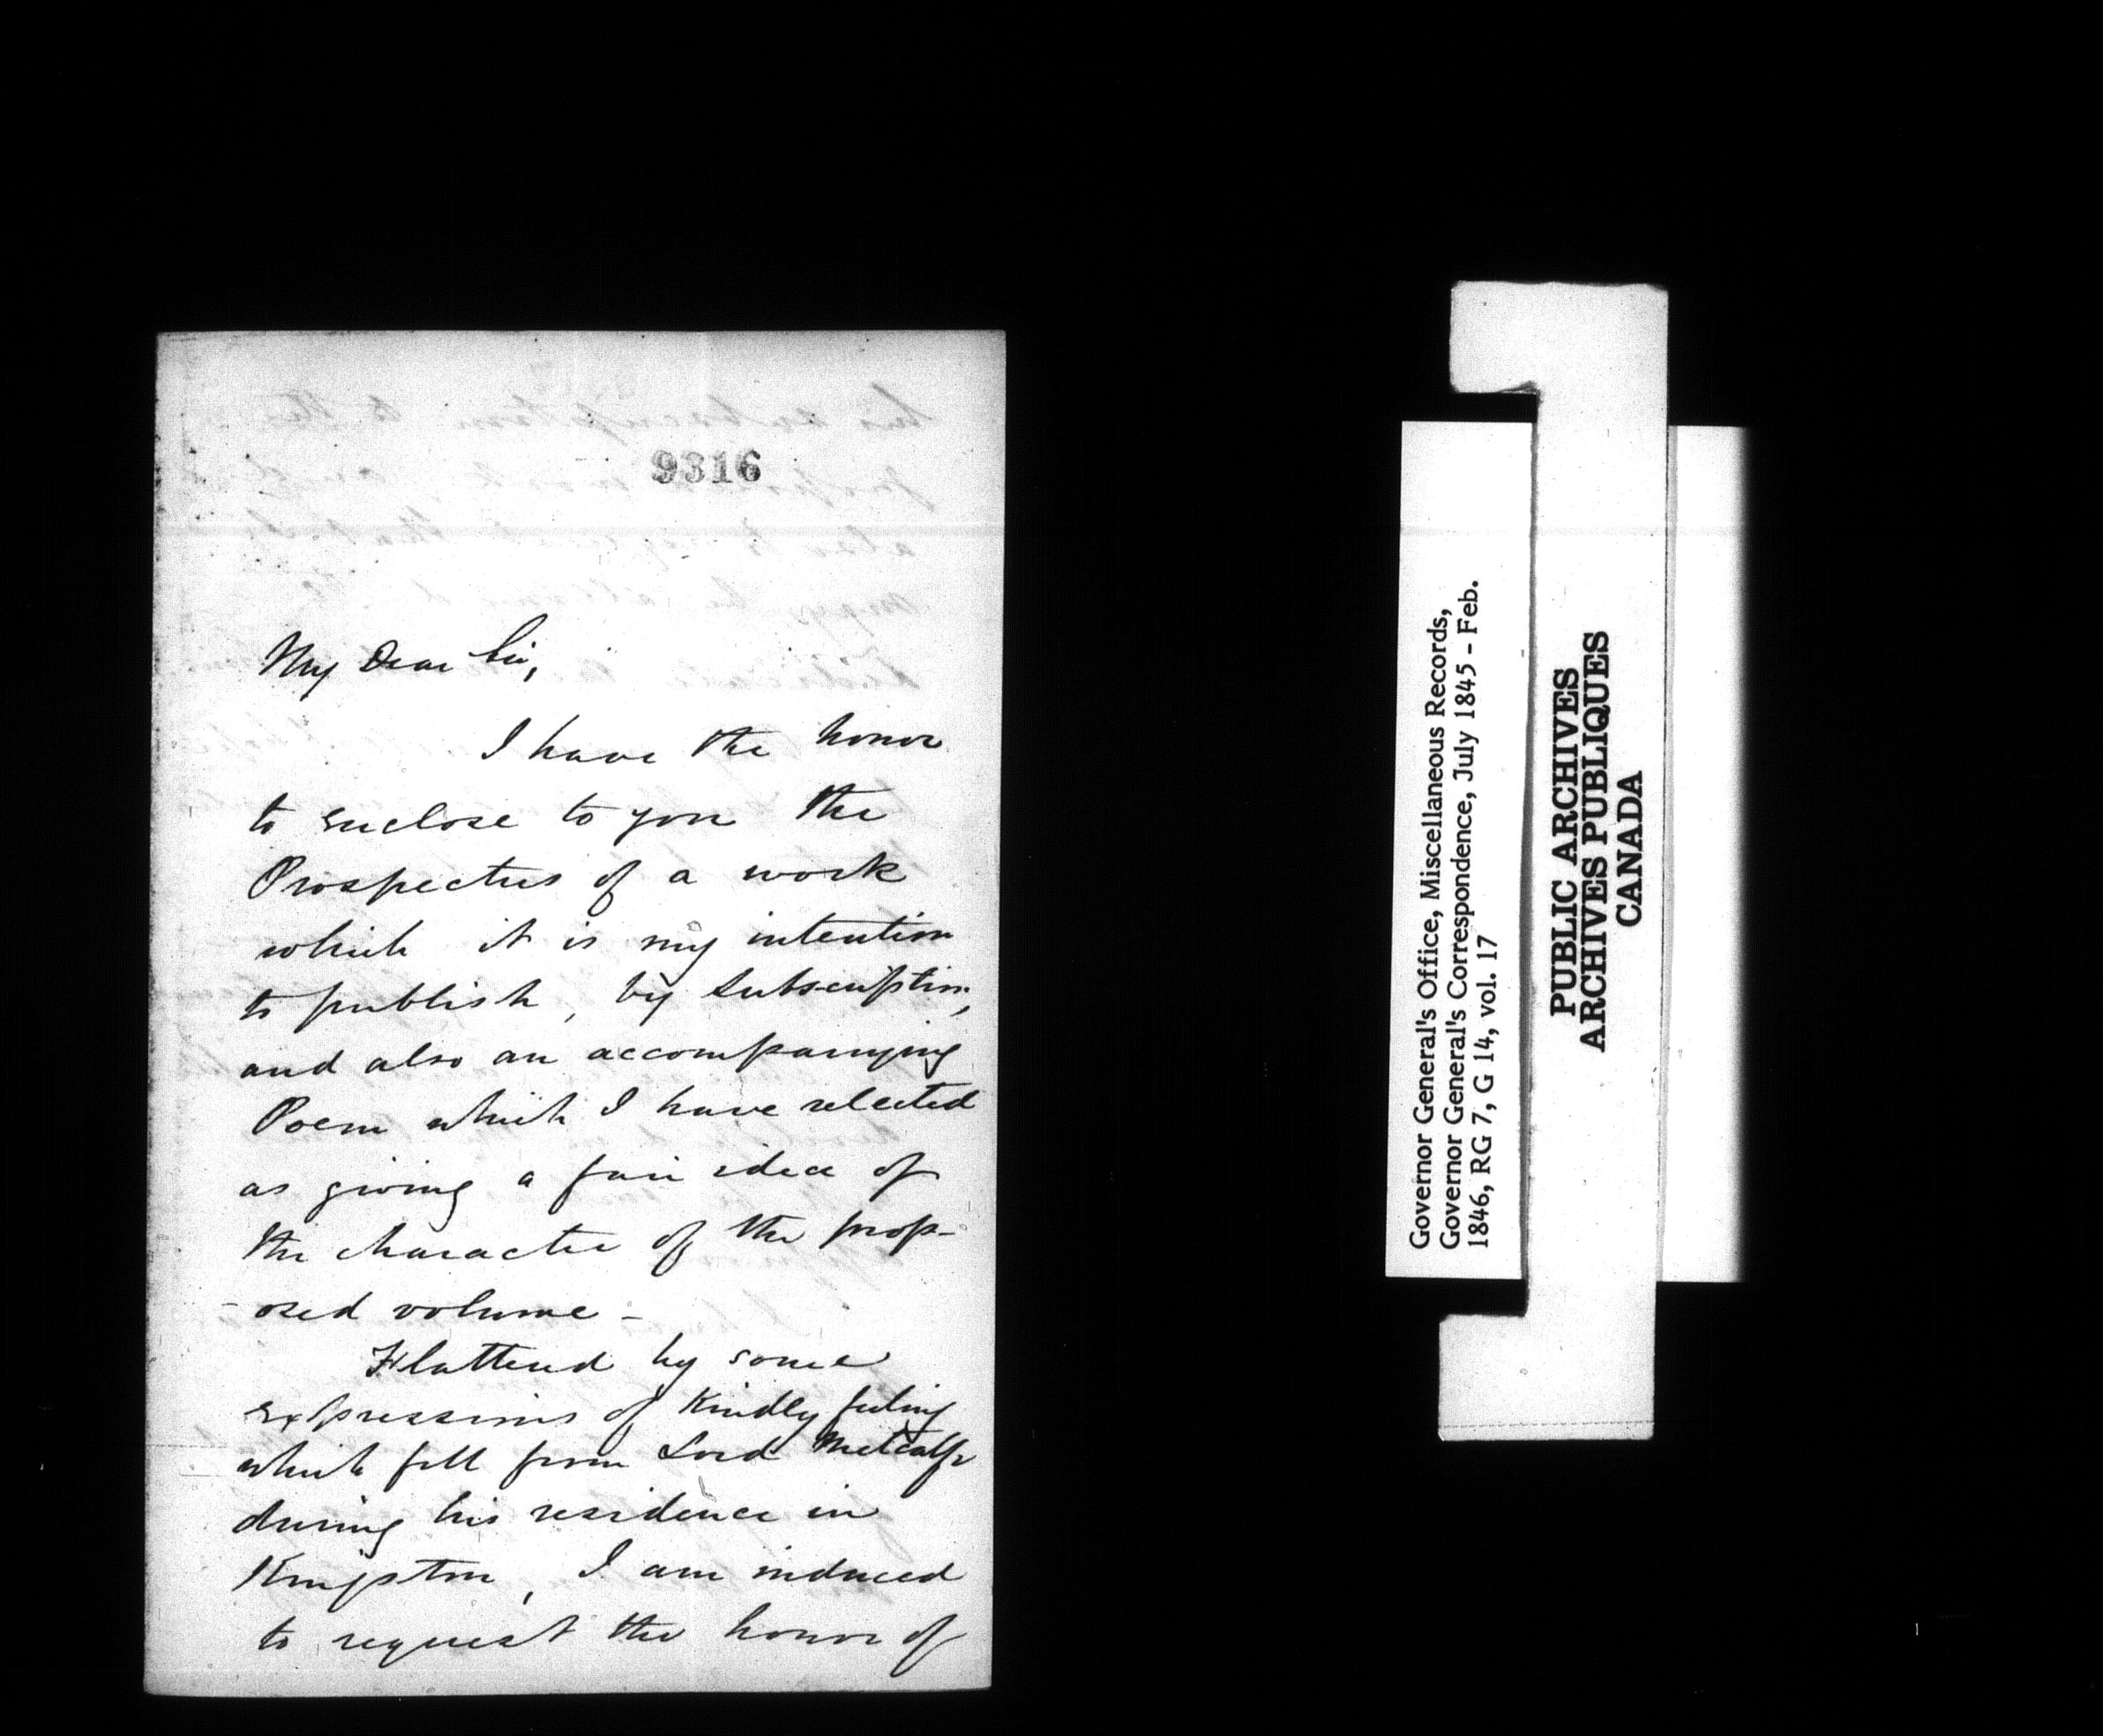 9316
My Dear Sir,
I have the honor
to enclose to you the
Prospectus of a work
which it is my intention
to publish, by subscription,
and also an accompanying
Poem which I have selected
as giving a fair idea of
the character of the prop-
-osed volume -
Flattered by some
expressions of Kindly feeling
which fell from Lord Metcalfe
during his residence in
Kingston, I am induced
to request the honor of
Governor General's Office, Miscellaneous Records,
Governor General's Correspondence, July 1845 - Feb.
1846, RG 7, G 14, vol. 17
PUBLIC ARCHIVES
ARCHIVES PUBLIQUES
CANADA